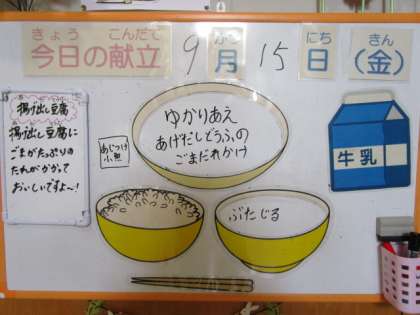 きょう こんだて
今日の献立
9
がつ
月
15
にち
日
きん
(金)
揚げ出し豆腐
揚げ出し豆腐に
ごまがたっぷりの
たれがかかって
おいしいですよ~!
あじつけ
小魚
ゆかりあえ
あげだしどうふの
ごまだれかけ
牛乳
ぶたじる